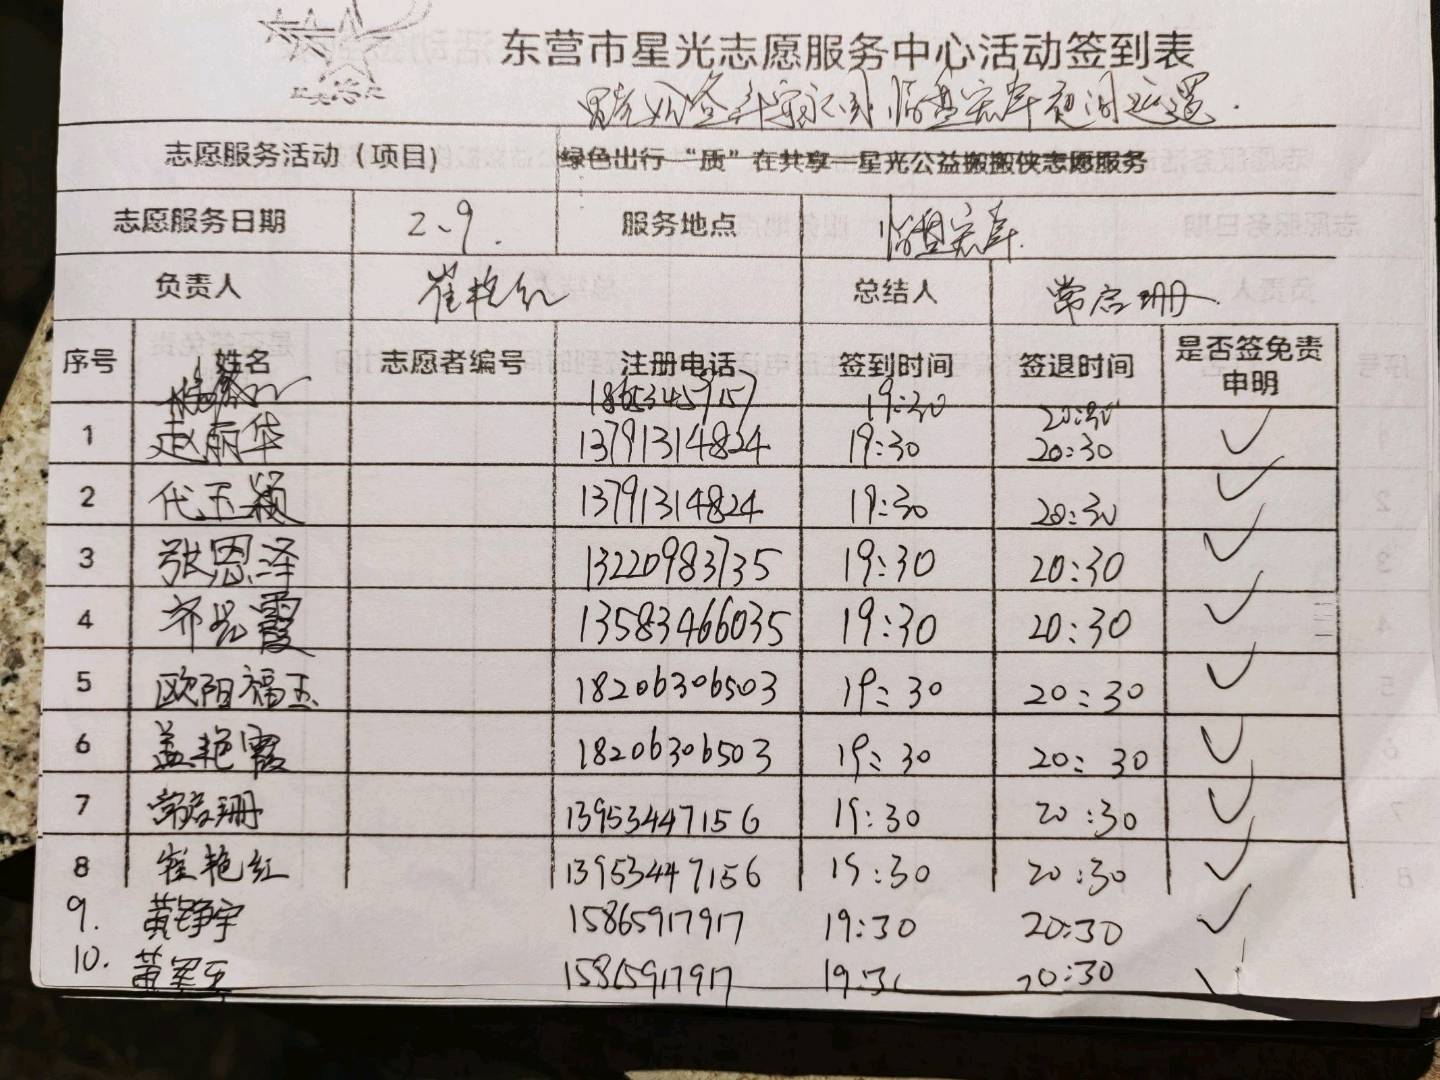 东营市星光志愿服务中心活动签到表
志愿服务活动（项目） 绿色出行 “质”在共享—星光公益搬搬侠志愿服务
志愿服务日期 2、9. 服务地点
负责人 崔艳红 总结人 常启珊
序号 姓名 志愿者编号 注册电话 签到时间 签退时间 是否签免责申明
19:30 20:30
1 赵丽华 13791314824 19:30 20:30 ✓
2 代玉颖 13791314824 19:30 20:30 ✓
3 张恩泽 13220983735 19:30 20:30 ✓
4 霞 13583466035 19:30 20:30 ✓
5 欧阳福玉 18206306503 19:30 20:30 ✓
6 盖艳霞 18206306503 19:30 20:30 ✓
7 常启珊 13953447156 19:30 20:30 ✓
8 崔艳红 13953447156 19:30 20:30 ✓
9. 黄铮宇 15865917917 19:30 20:30 ✓
10. 黄 15865917917 20:30